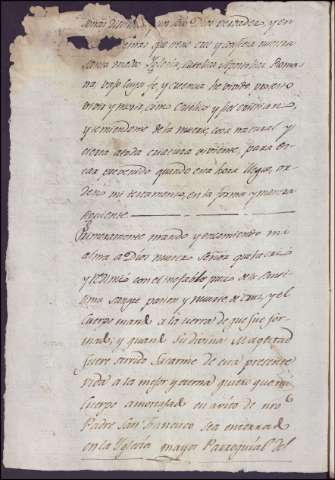 Personas distintas, y un solo Dios verdadero, y en
que tiene cree y confiesa nuestra
santa madre Iglesia, Catolica Apostolica Roma
na, bajo cuya fe, y creencia he vivido, protesto
vivir y morir, como Catolico y fiel cristiano,
y temiendome de la muerte, cosa natural y
cierta atoda criatura viviente, para es
tar prevenido quando esta hora llegue, or
deno mi testamento, en la forma y manera
siguiente
Primeramente mando y encomiendo mi
alma a Dios nuestro Señor que la crió
y redimió con el inestimable precio de su Santi
sima Sangre pasion y muerte de cruz, y el
Cuerpo mando a la tierra de que fue for
mado, y quando Su Divina Magestad
fuere servido sacarme de esta presente
vida a la mejor y eterna quiero que mi
cuerpo amortajado en avito de nro
Padre San Francisco sea enterrado
en la Yglesia mayor Parroquial del